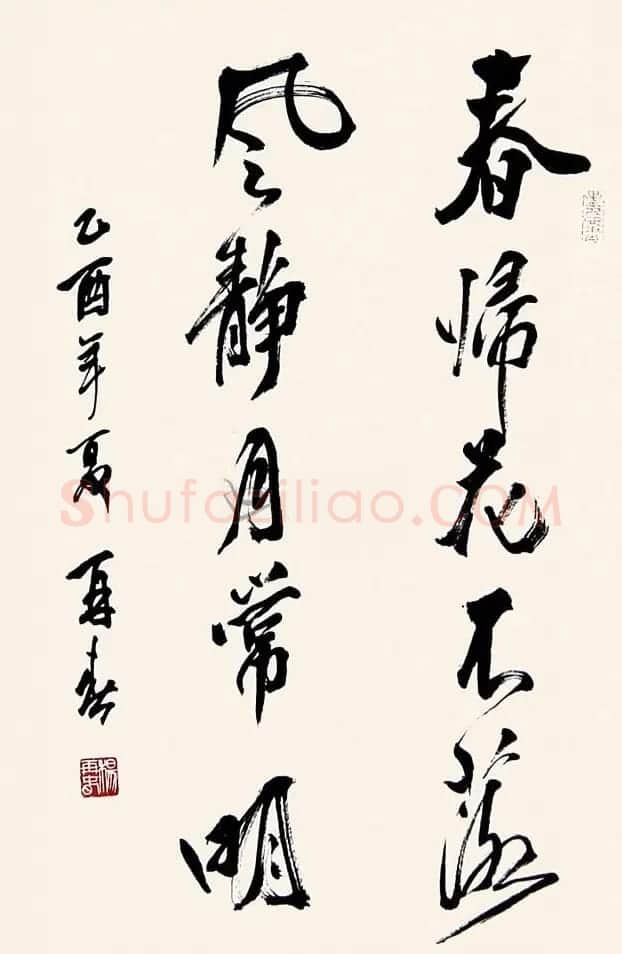 春歸花不落
風静月常明
乙酉年夏 再春
楊再春
Shufaziliao.COM